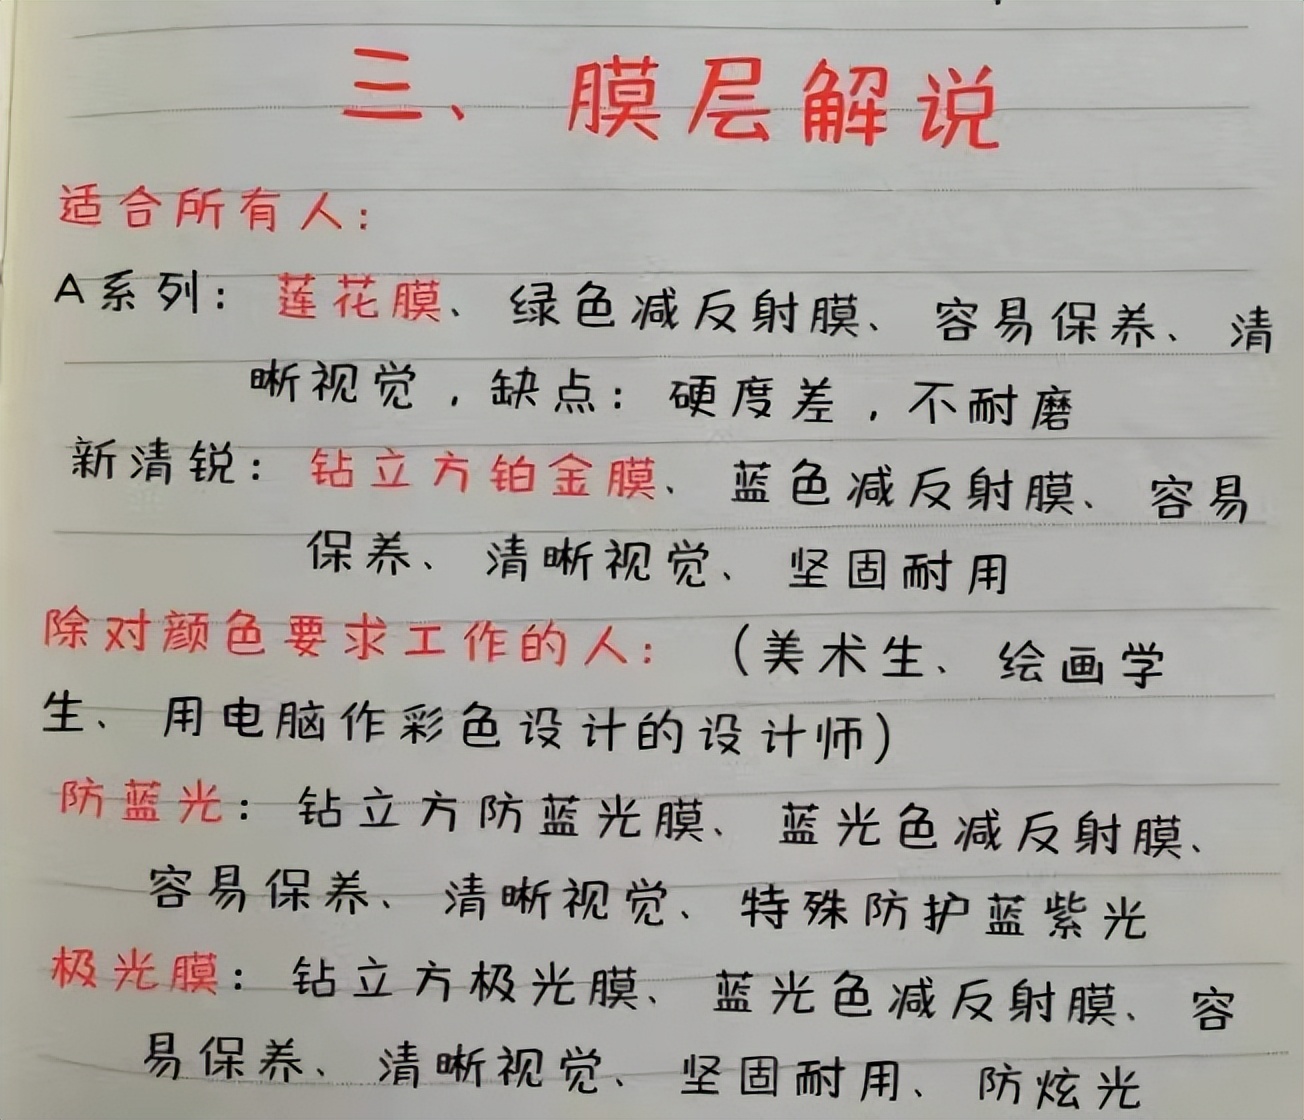 三、膜层解说
适合所有人:
A系列: 莲花膜、绿色减反射膜、容易保养、清
晰视觉,缺点: 硬度差,不耐磨
新清锐: 钻立方铂金膜、蓝色减反射膜、容易
保养、清晰视觉、坚固耐用
除对颜色要求工作的人: (美术生、绘画学
生、用电脑作彩色设计的设计师)
防蓝光: 钻立方防蓝光膜、蓝光色减反射膜、
容易保养、清晰视觉、特殊防护蓝紫光
极光膜: 钻立方极光膜、蓝光色减反射膜、容
易保养、清晰视觉、坚固耐用、防炫光